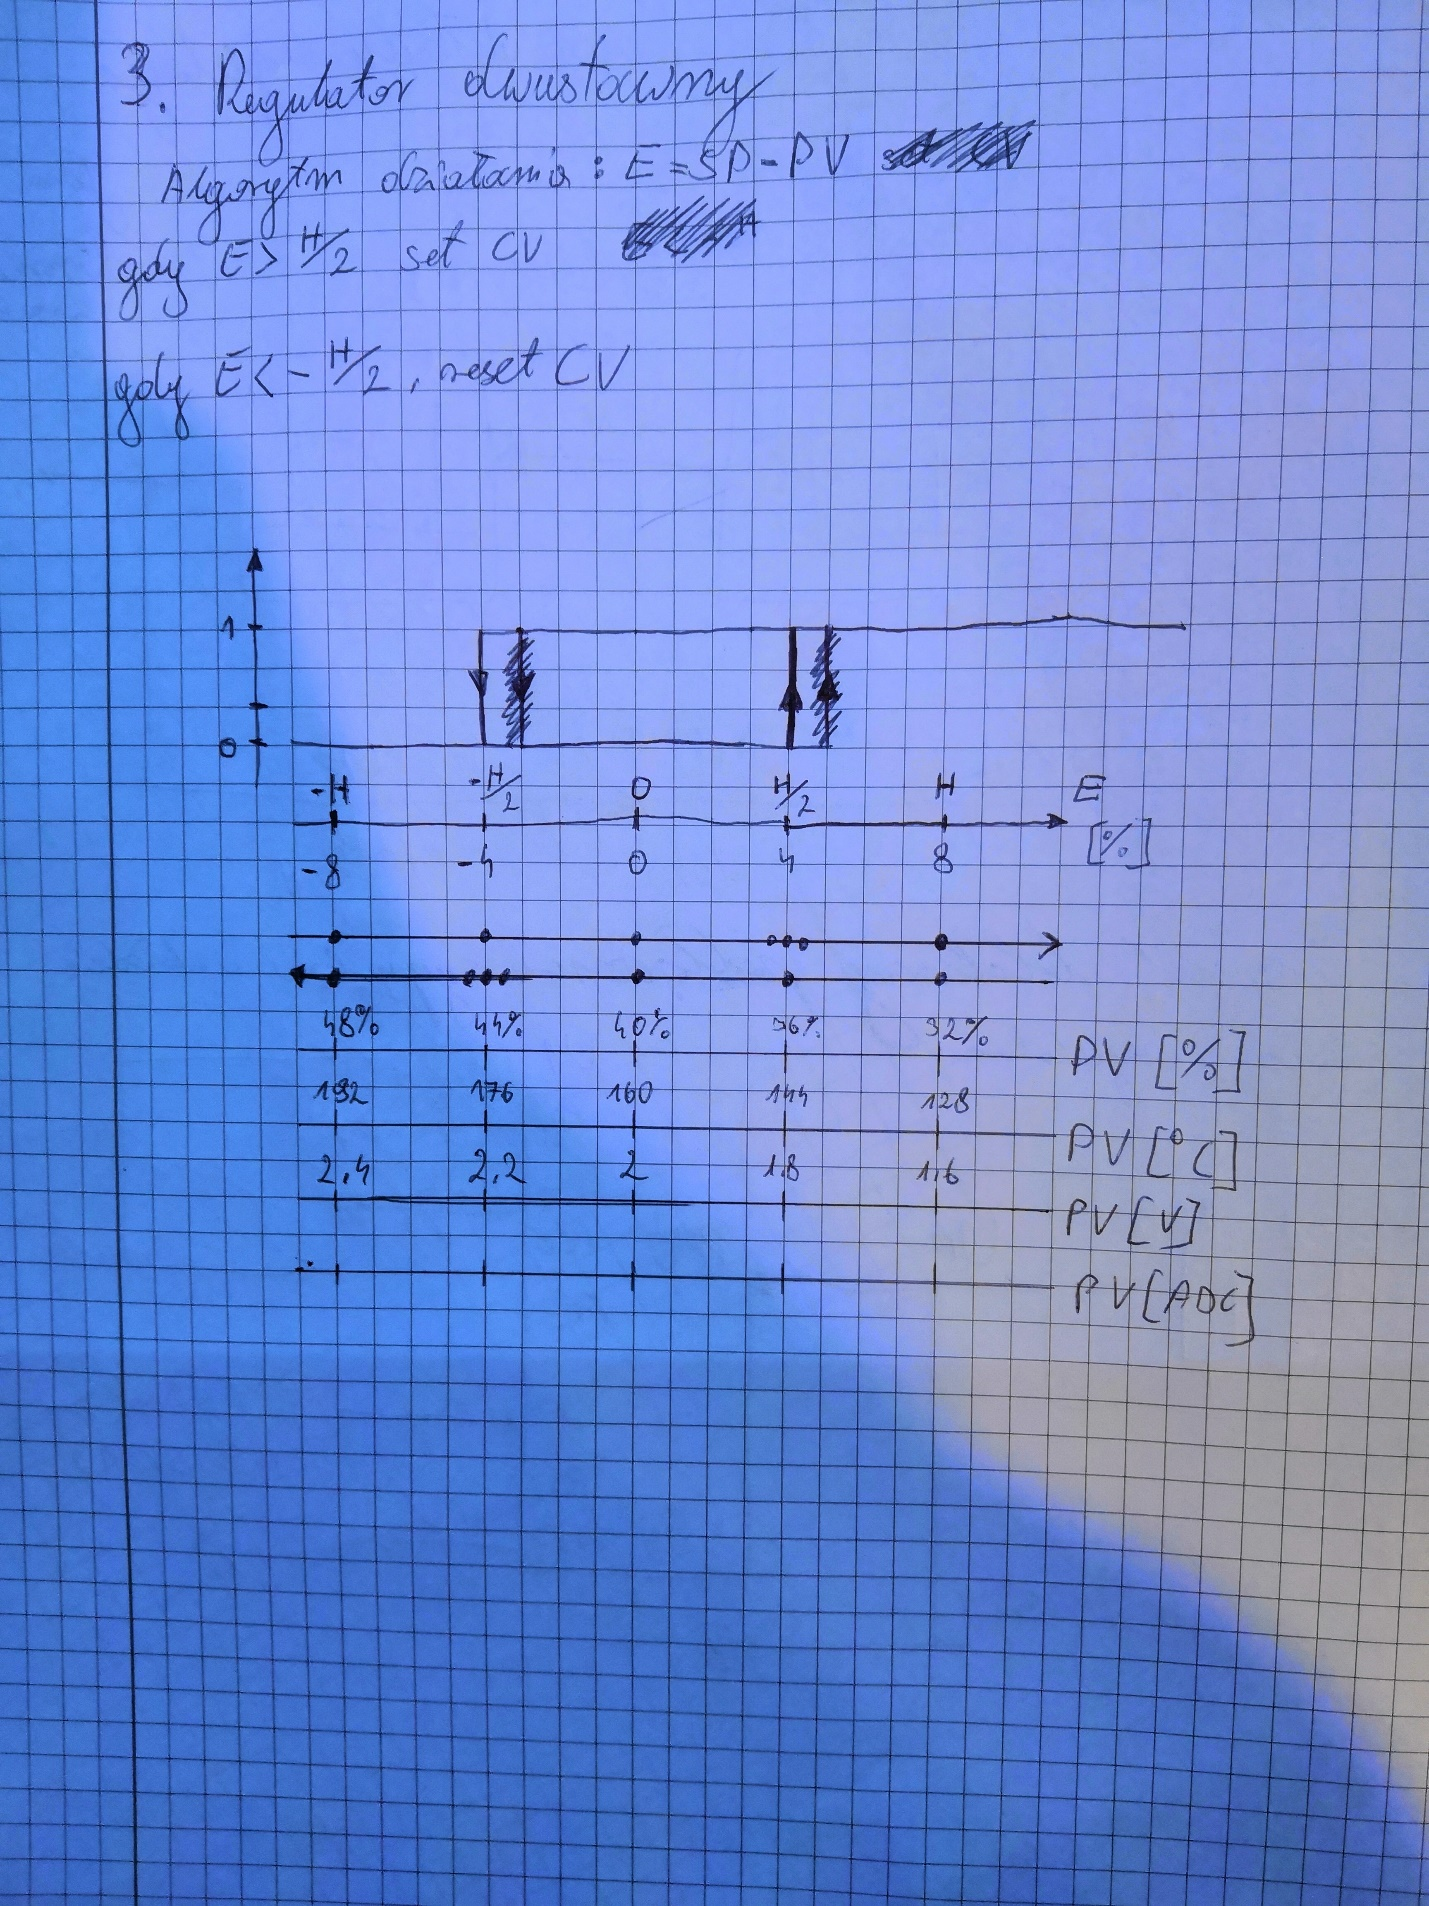 3. Regulator dwustawny
Algorytm działania: E = SP - PV
gdy E > H/2 set CV
gdy E < - H/2, reset CV
1
0
-H -H/2 0 H/2 H E
-8 -4 0 4 8 [%]
48% 44% 40% 36% 32% PV [%]
192 176 160 144 128 PV [°C]
2.4 2.2 2 1.8 1.6 PV [V]
PV [ADC]